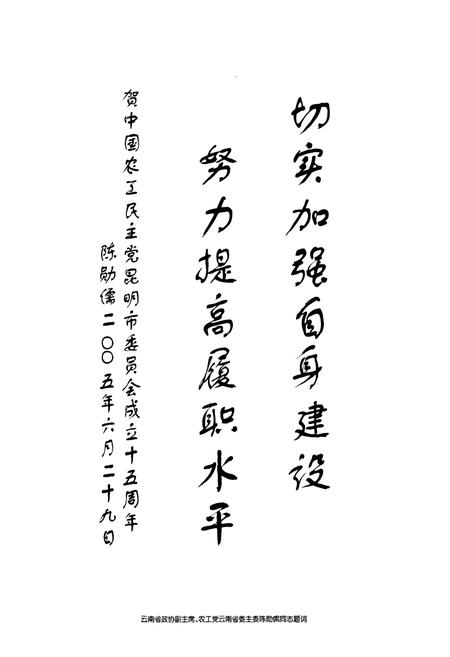 切实加强自身建设
努力提高履职水平
贺中国农工民主党昆明市委员会成立十五周年
陈勋儒二〇〇五年六月二十九日
云南省政协副主席、农工党云南省委主委陈勋儒同志题词